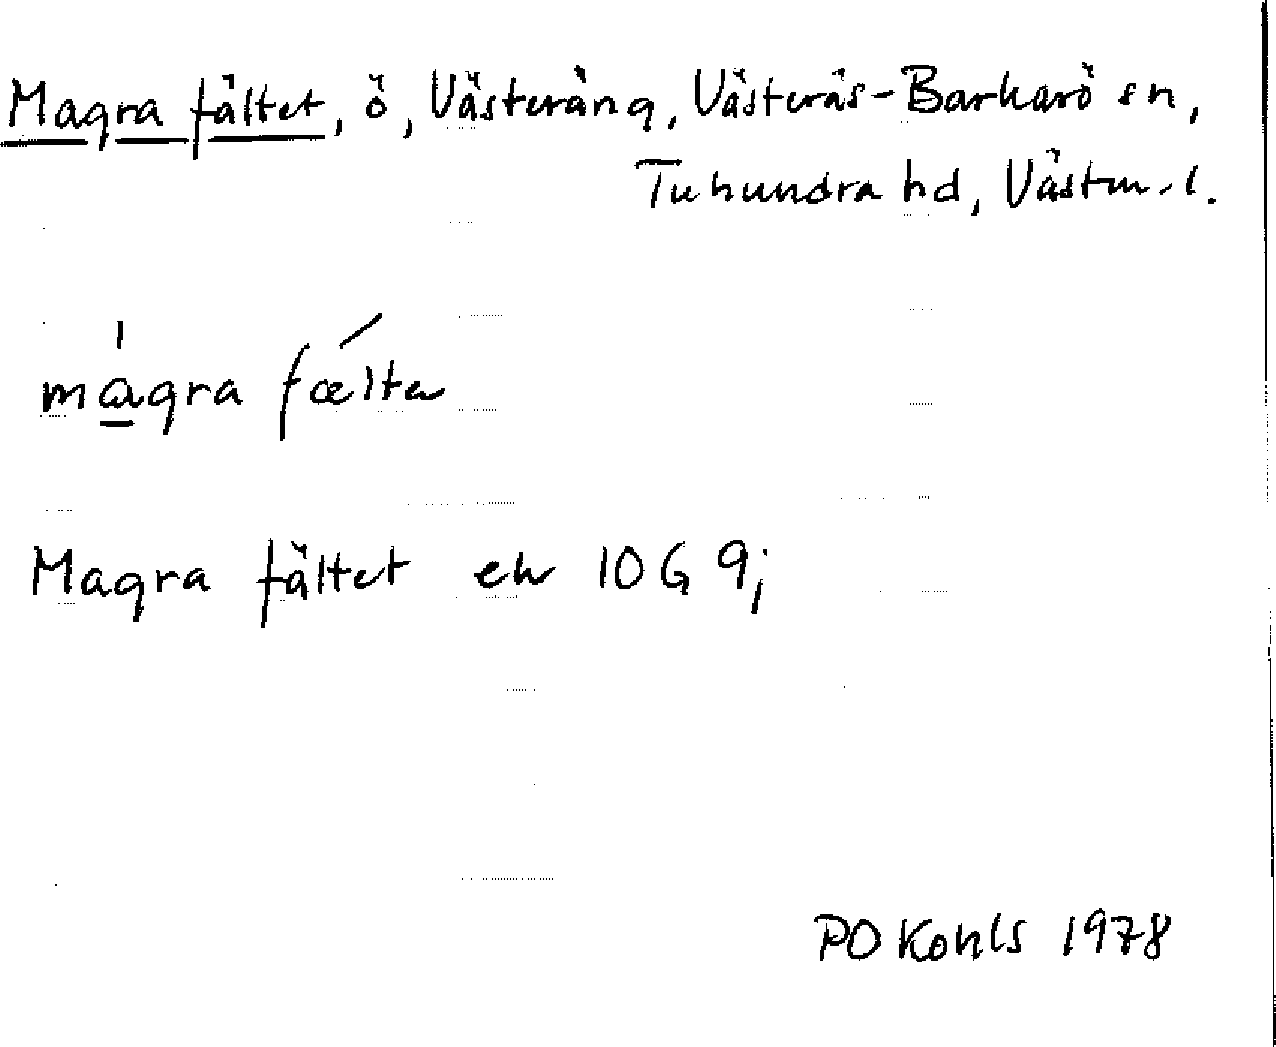 Magra fältet, ö, Västeräng, Västerås-Barkarö sn,
Tuhundra hd, Västm.l.
mágra fælta
Magra fältet ek 10G 9j
PO Kohls 1978